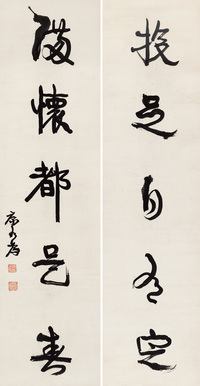 投足自有定
滿懷都是春
康有為